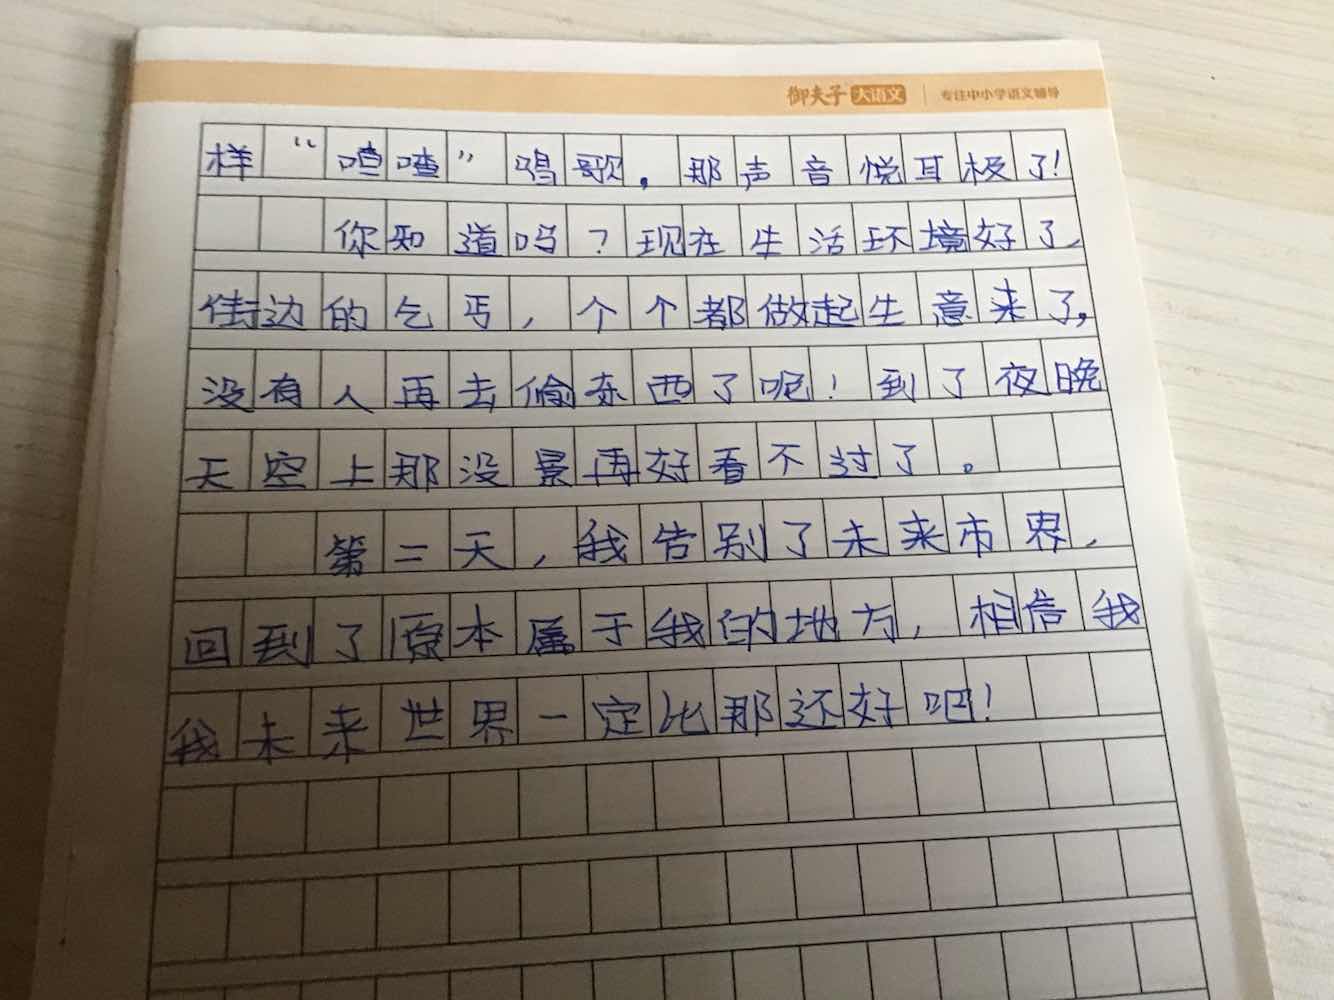 御夫子 大语文 专注中小学语文辅导
样“喳喳”唱歌，那声音悦耳极了！
你知道吗？现在生活环境好了，
街边的乞丐，个个都做起生意来了，
没有人再去偷东西了呢！到了夜晚
天空上那没景再好看不过了。
第二天，我告别了未来市界，
回到了原本属于我的地方，相信我
我未来世界一定比那还好吧！